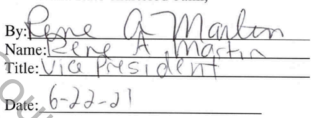 By: Rene A Martin
Name: Rene A. Martin
Title: Vice President
Date: 6-22-21